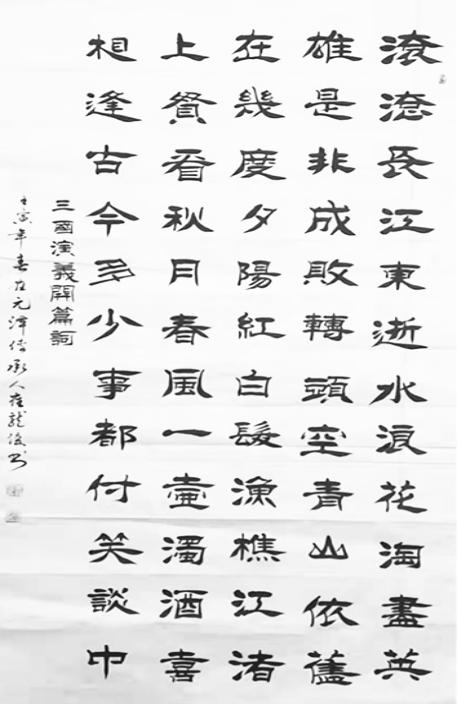 滾滾長江東逝水浪花淘盡英
雄是非成敗轉頭空青山依舊
在幾度夕陽紅白髮漁樵江渚
上看秋月春風一壺濁酒喜
相逢古今多少事都付笑談中
三國演義開篇詞
壬寅年春月元傳承人崔龍俊书